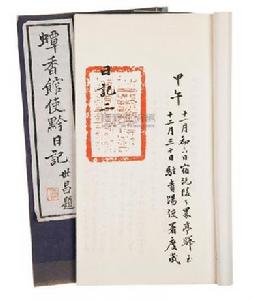 蟫香館使黔日記
世昌題
日記二
甲午
十一月初六日宿沅陵之界亭驛至
十二月三十日駐貴陽使署度歲